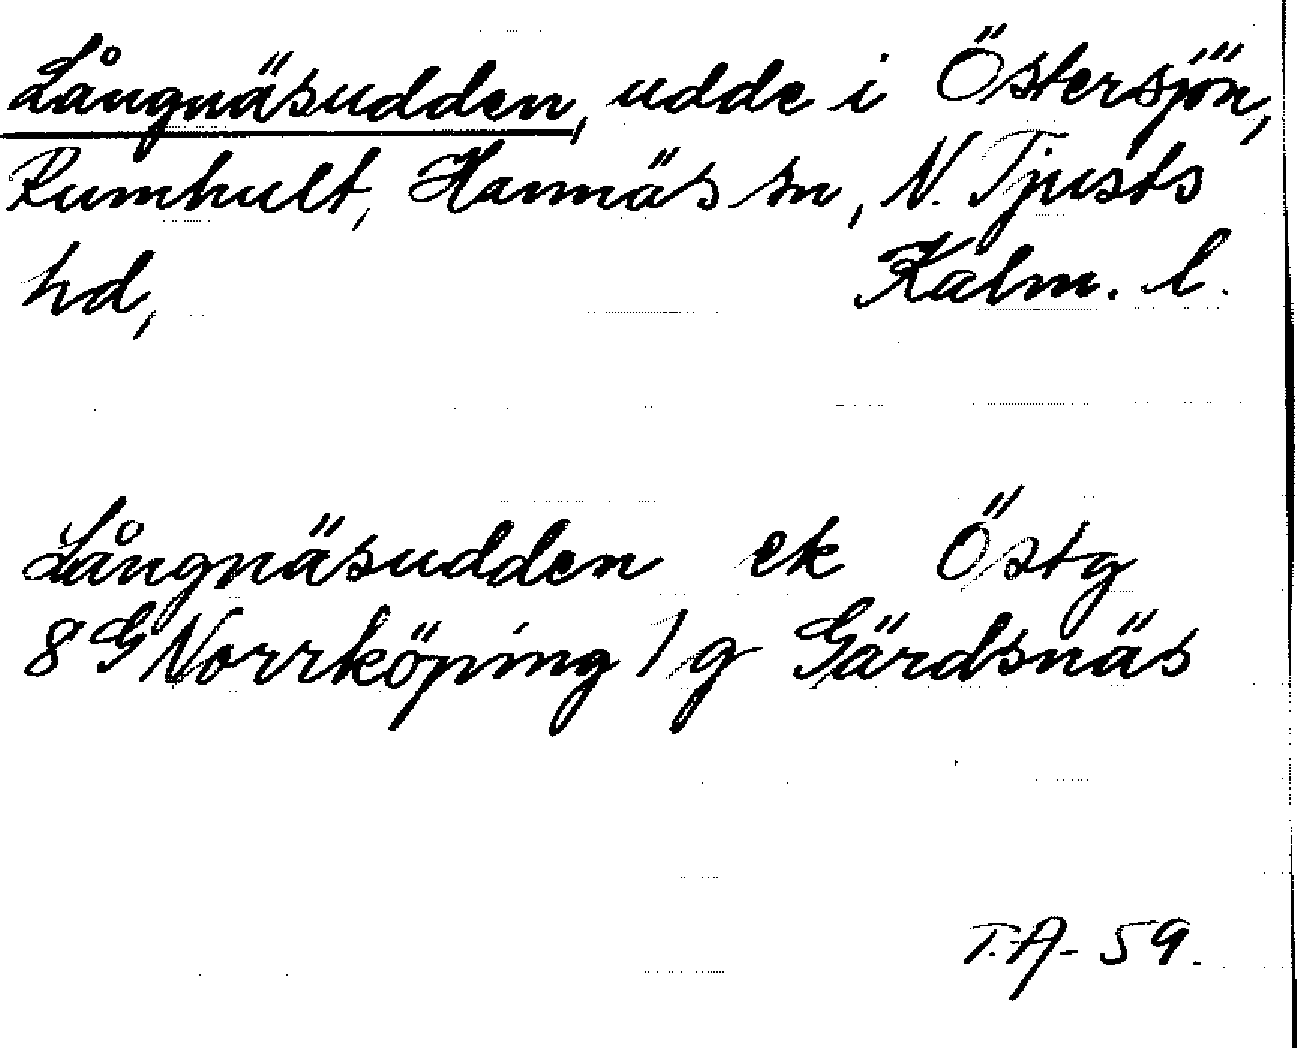 Långnäsudden, udde i Östersjön,
Rumhult, Hannäs sn, N. Tjusts
hd, Kalm. l.
Långnäsudden ek Östg
8 G Norrköping / g Gärdsnäs
T.A- 59.